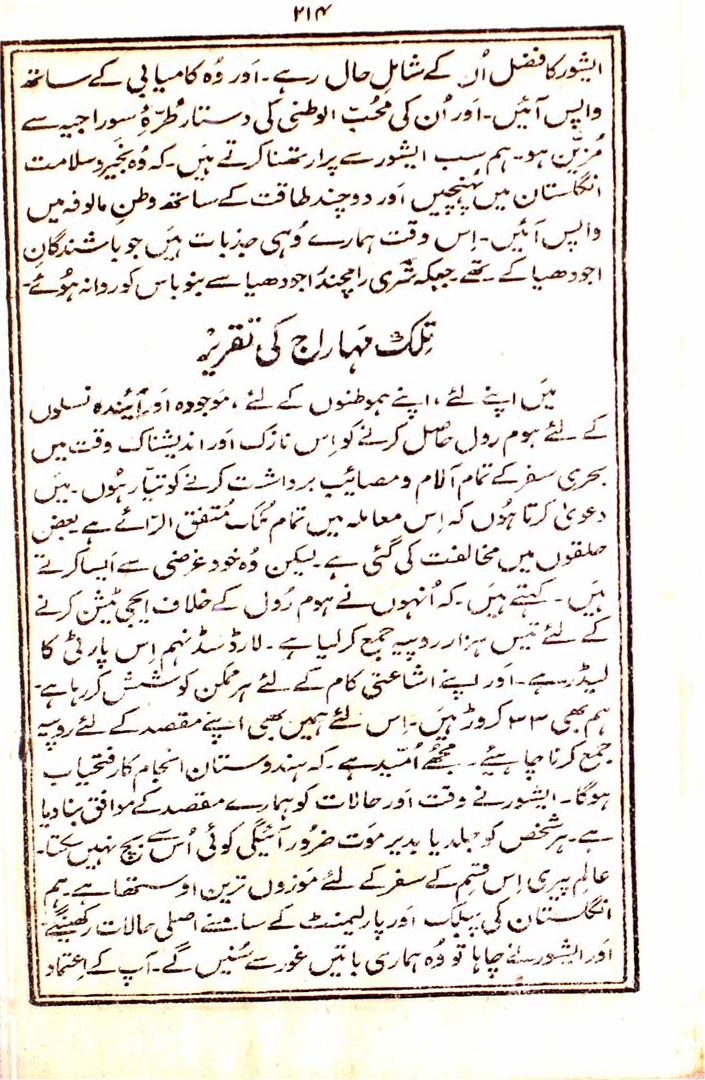 ۲۱۴
ایشور کا فضل اُن کے شاملِ حال رہے۔ اَور وُہ کامیابی کے ساتھ
واپس آئیں۔ اَور اُن کی مُحبّ الوطنی کی دستار طُرّۂ سوراجیہ سے
مُزیّن ہو۔ ہم سب ایشور سے پرارتھنا کرتے ہَیں۔ کہ وُہ بخیر و سلامت
انگلستان میں پُہنچیں اَور دو چند طاقت کے ساتھ وطنِ مالوفہ میں
واپس آئیں۔ اِس وقت ہمارے وُہی جذبات ہَیں جو باشندگانِ
اجودھیا کے تھے جبکہ شری رامچندر اجودھیا سے بنوباس کو روانہ ہوُئے۔
تِلک مہاراج کی تقریر
مَیں اپنے لئے، اپنے ہموطنوں کے لئے، مَوجودہ اَور آئیندہ نسلوں
کے لئے ہوم رول حاصل کرنے کو اِس نازک اَور اندیشناک وقت میں
بحری سفر کے تمام آلام و مصائب برداشت کرنے کو تیّار ہُوں۔ مَیں
دعویٰ کرتا ہُوں کہ اِس معاملہ میں تمام مُلک مُتفق الرّائے ہے بعض
حلقوں میں مخالفت کی گئی ہے۔ لیکن وُہ خود غرضی سے اَیسا کرتے
ہَیں۔ کہتے ہَیں۔ کہ اُنہوں نے ہوم رُول کے خلاف ایجی ٹیشن کرنے
کے لئے تیس ہزار روپیہ جمع کر لیا ہے۔ لارڈ سڈنہم اِس پارٹی کا
لیڈر ہے۔ اَور اپنے اشاعتی کام کے لئے ہر ممکن کوشش کر رہا ہے۔
ہم بھی ۳۳ کروڑ ہَیں۔ اِس لئے ہمیں بھی اپنے مقصد کے لئے روپیہ
جمع کرنا چاہئیے۔ مجھُے اُمّید ہے۔ کہ ہندوستان انجام کار فتحیاب
ہوگا۔ ایشور نے وقت اَور حالات کو ہمارے مقصد کے موافق بنا دیا
ہے۔ ہر شخص کو جلد یا بدیر مَوت ضرُور آئیگی کوئی اُس سے بچ نہیں سکتا۔
عالمِ پیری اِس قِسم کے سفر کے لئے مَوزوں ترین اوستھا ہے۔ ہم
انگلستان کی پبلک اَور پارلیمنٹ کے سامنے اصلی حالات رکھینگے۔
اَور ایشور نے چاہا تو وُہ ہماری باتیں غور سے سُنیں گے۔ آپ کے اِعتماد